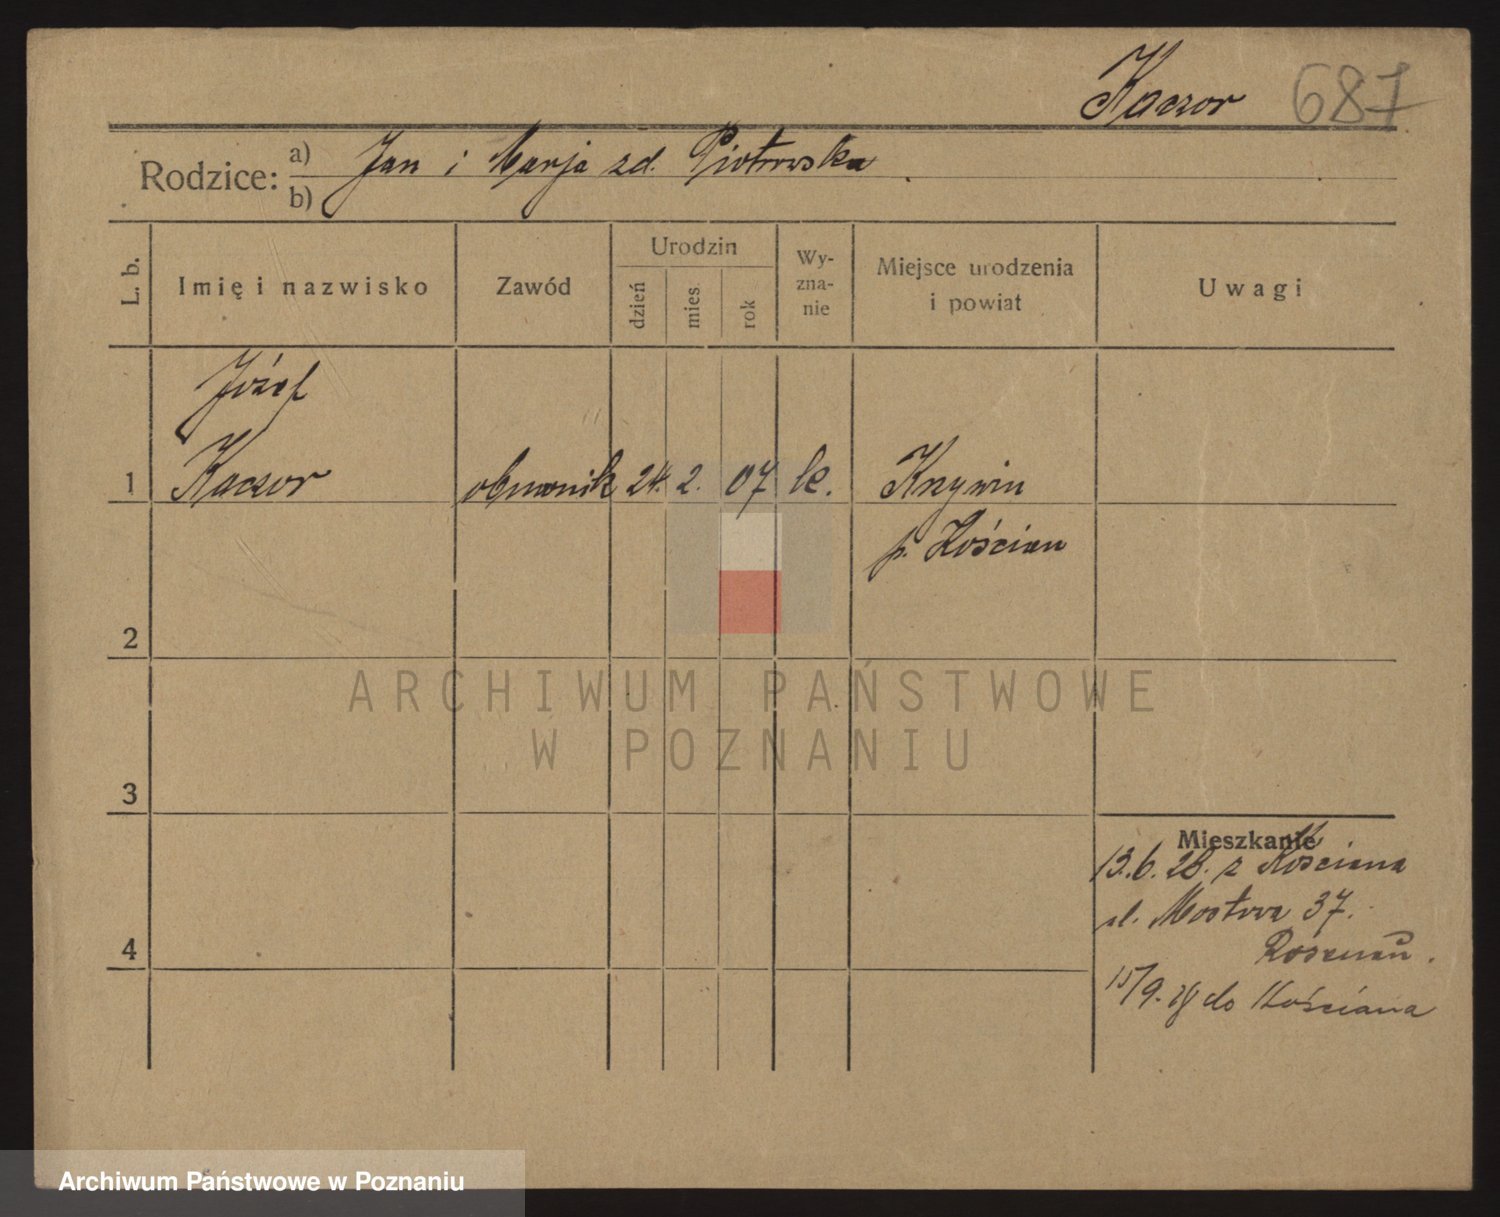 Kaczor 687
Rodzice: a) Jan i Marja zd. Piotrowska
b)
L. b. Imię i nazwisko Zawód Urodzin dzień mies. rok Wy-zna-nie Miejsce urodzenia i powiat Uwagi
Józef
1 Kaczor 24. 2. 07 k. Krzywin
p. Kościan
2
ARCHIWUM PAŃSTWOWE
W POZNANIU
3
Mieszkanie
13.6.28. z Kościana
ul. Mostowa 37.
15/9. 28 do Kościana
4
Archiwum Państwowe w Poznaniu